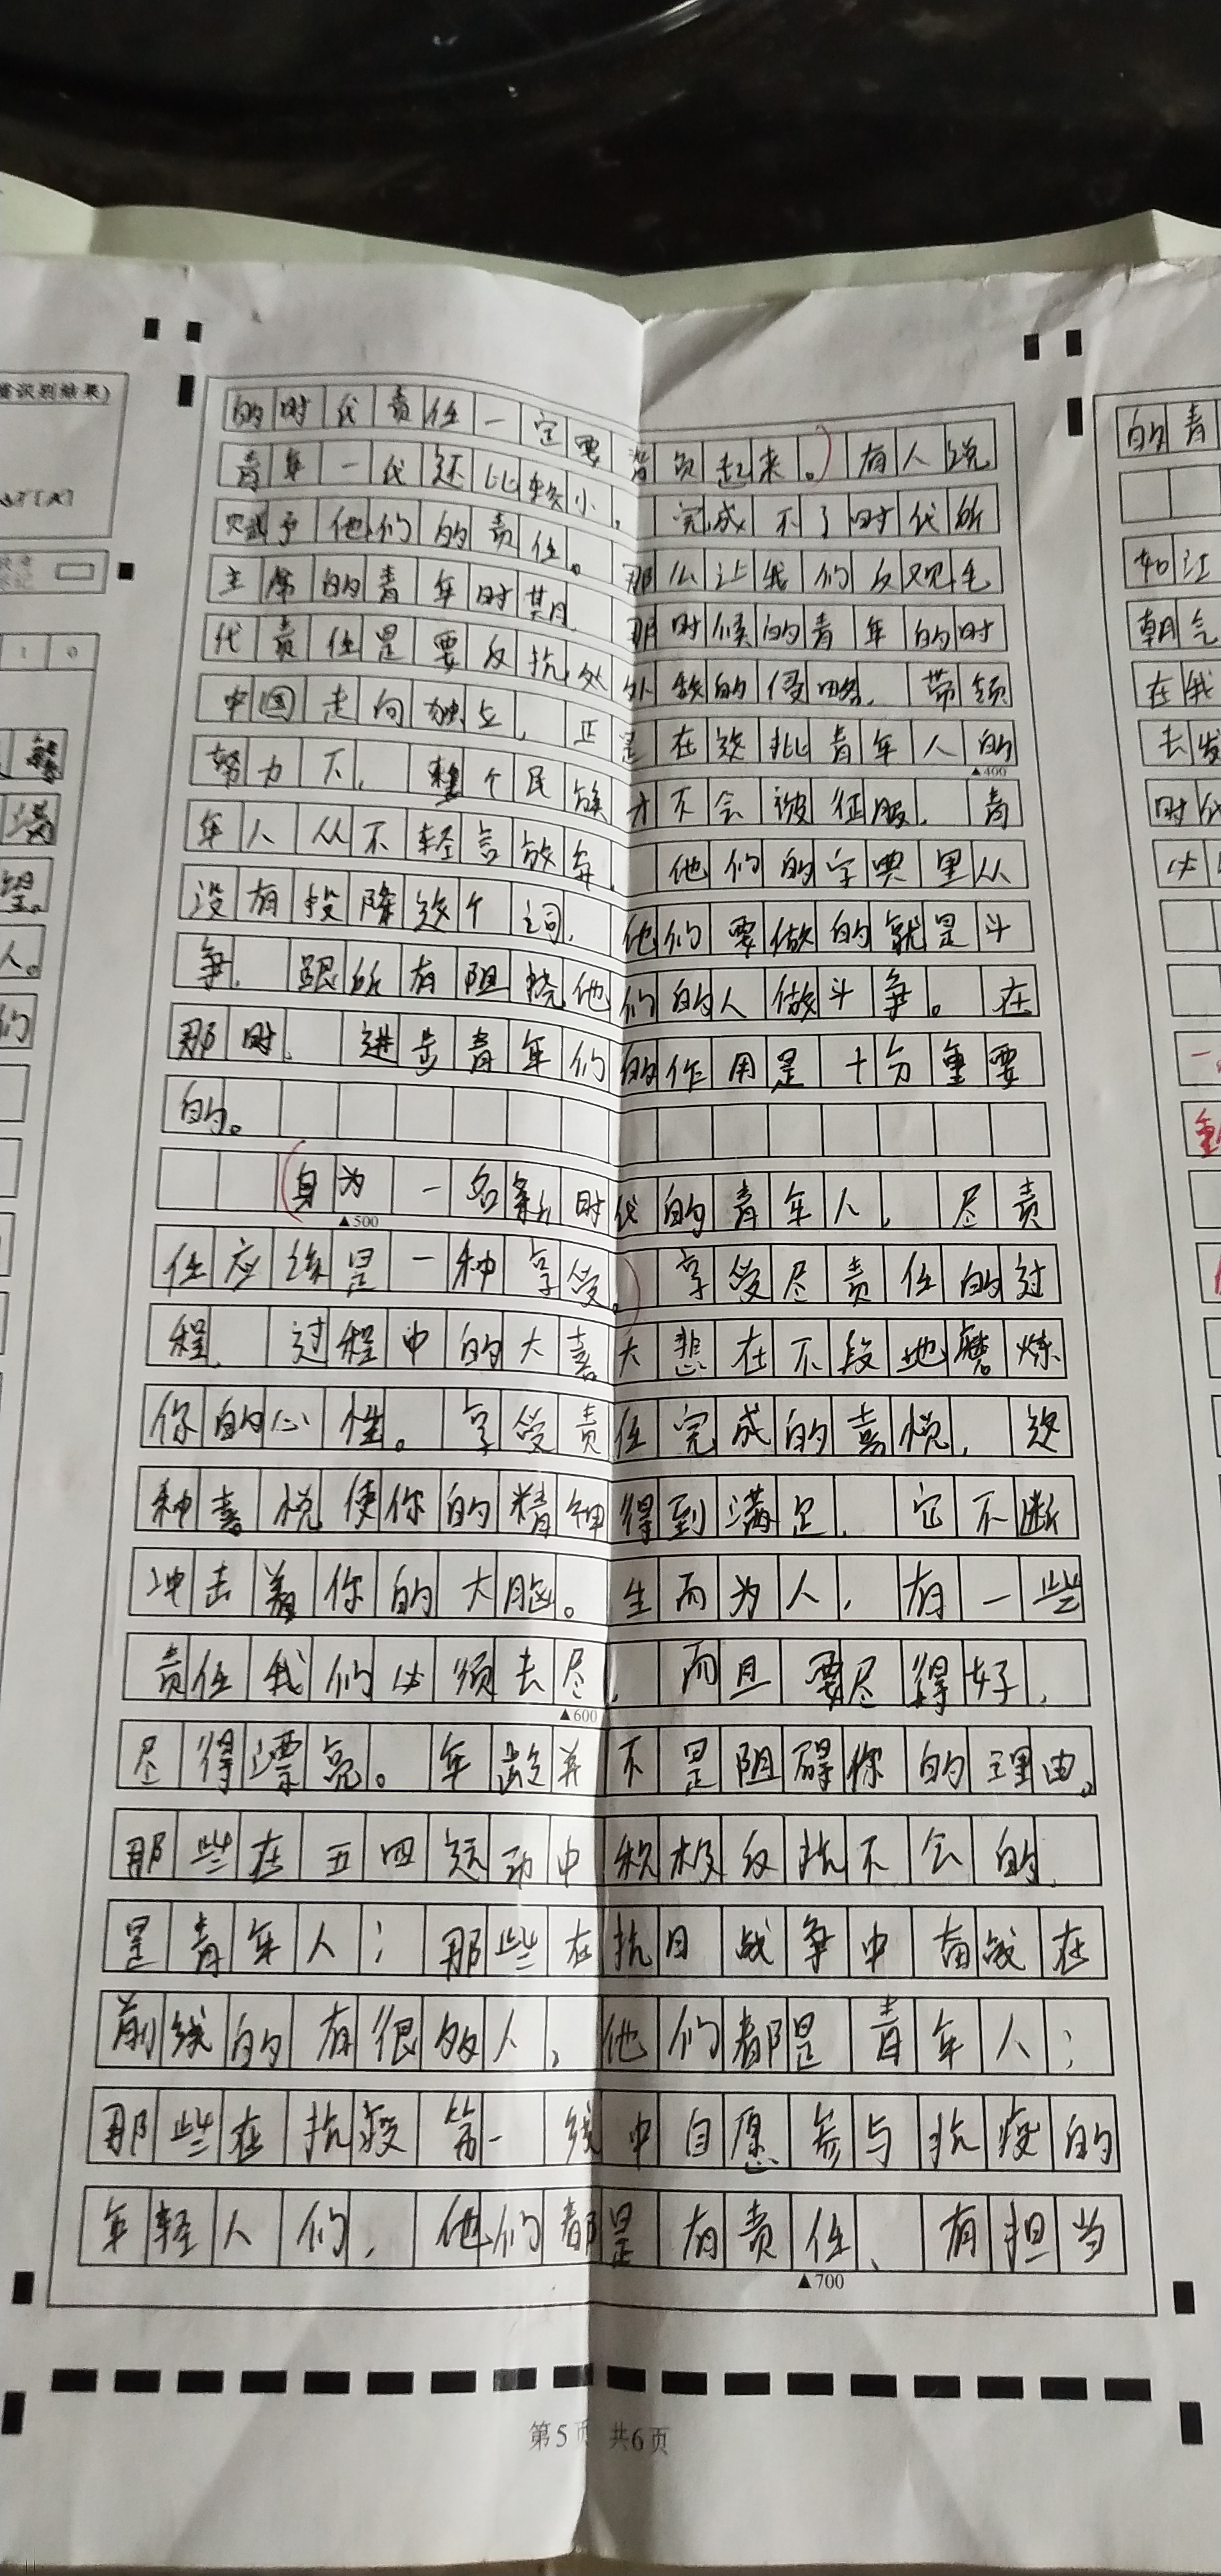 的时代责任一定要背负起来。有人说
青年一代还比较小，完成不了时代所
赋予他们的责任。那么让我们反观毛
主席的青年时期，那时候的青年的时
代责任是要反抗处外敌的侵略，带领
中国走向独立，正是在这批青年人的
▲400
努力下，整个民族才不会被征服，青
年人从不轻言放弃，他们的字典里从
没有投降这个词，他们要做的就是斗
争，跟所有阻挠他们的人做斗争。在
那时，进步青年们的作用是十分重要
的。
身为一名新时代的青年人，尽责
▲500
任应该是一种享受。享受尽责任的过
程，过程中的大喜大悲在不段地磨炼
你的心性。享受责任完成的喜悦，这
种喜悦使你的精神得到满足，它不断
冲击着你的大脑。生而为人，有一些
责任我们必须去尽，而且要尽得好，
▲600
尽得漂亮。年龄并不是阻碍你的理由。
那些在五四运动中积极反抗不会的，
是青年人；那些在抗日战争中奋战在
前线的有很多人，他们都是青年人；
那些在抗疫第一线中自愿参与抗疫的
年轻人们，他们都是有责任、有担当
▲700
第5页 共6页
识别结果)
1 0
满
望。
人。
们
的青
如江
朝气
在我
去发
时代
必